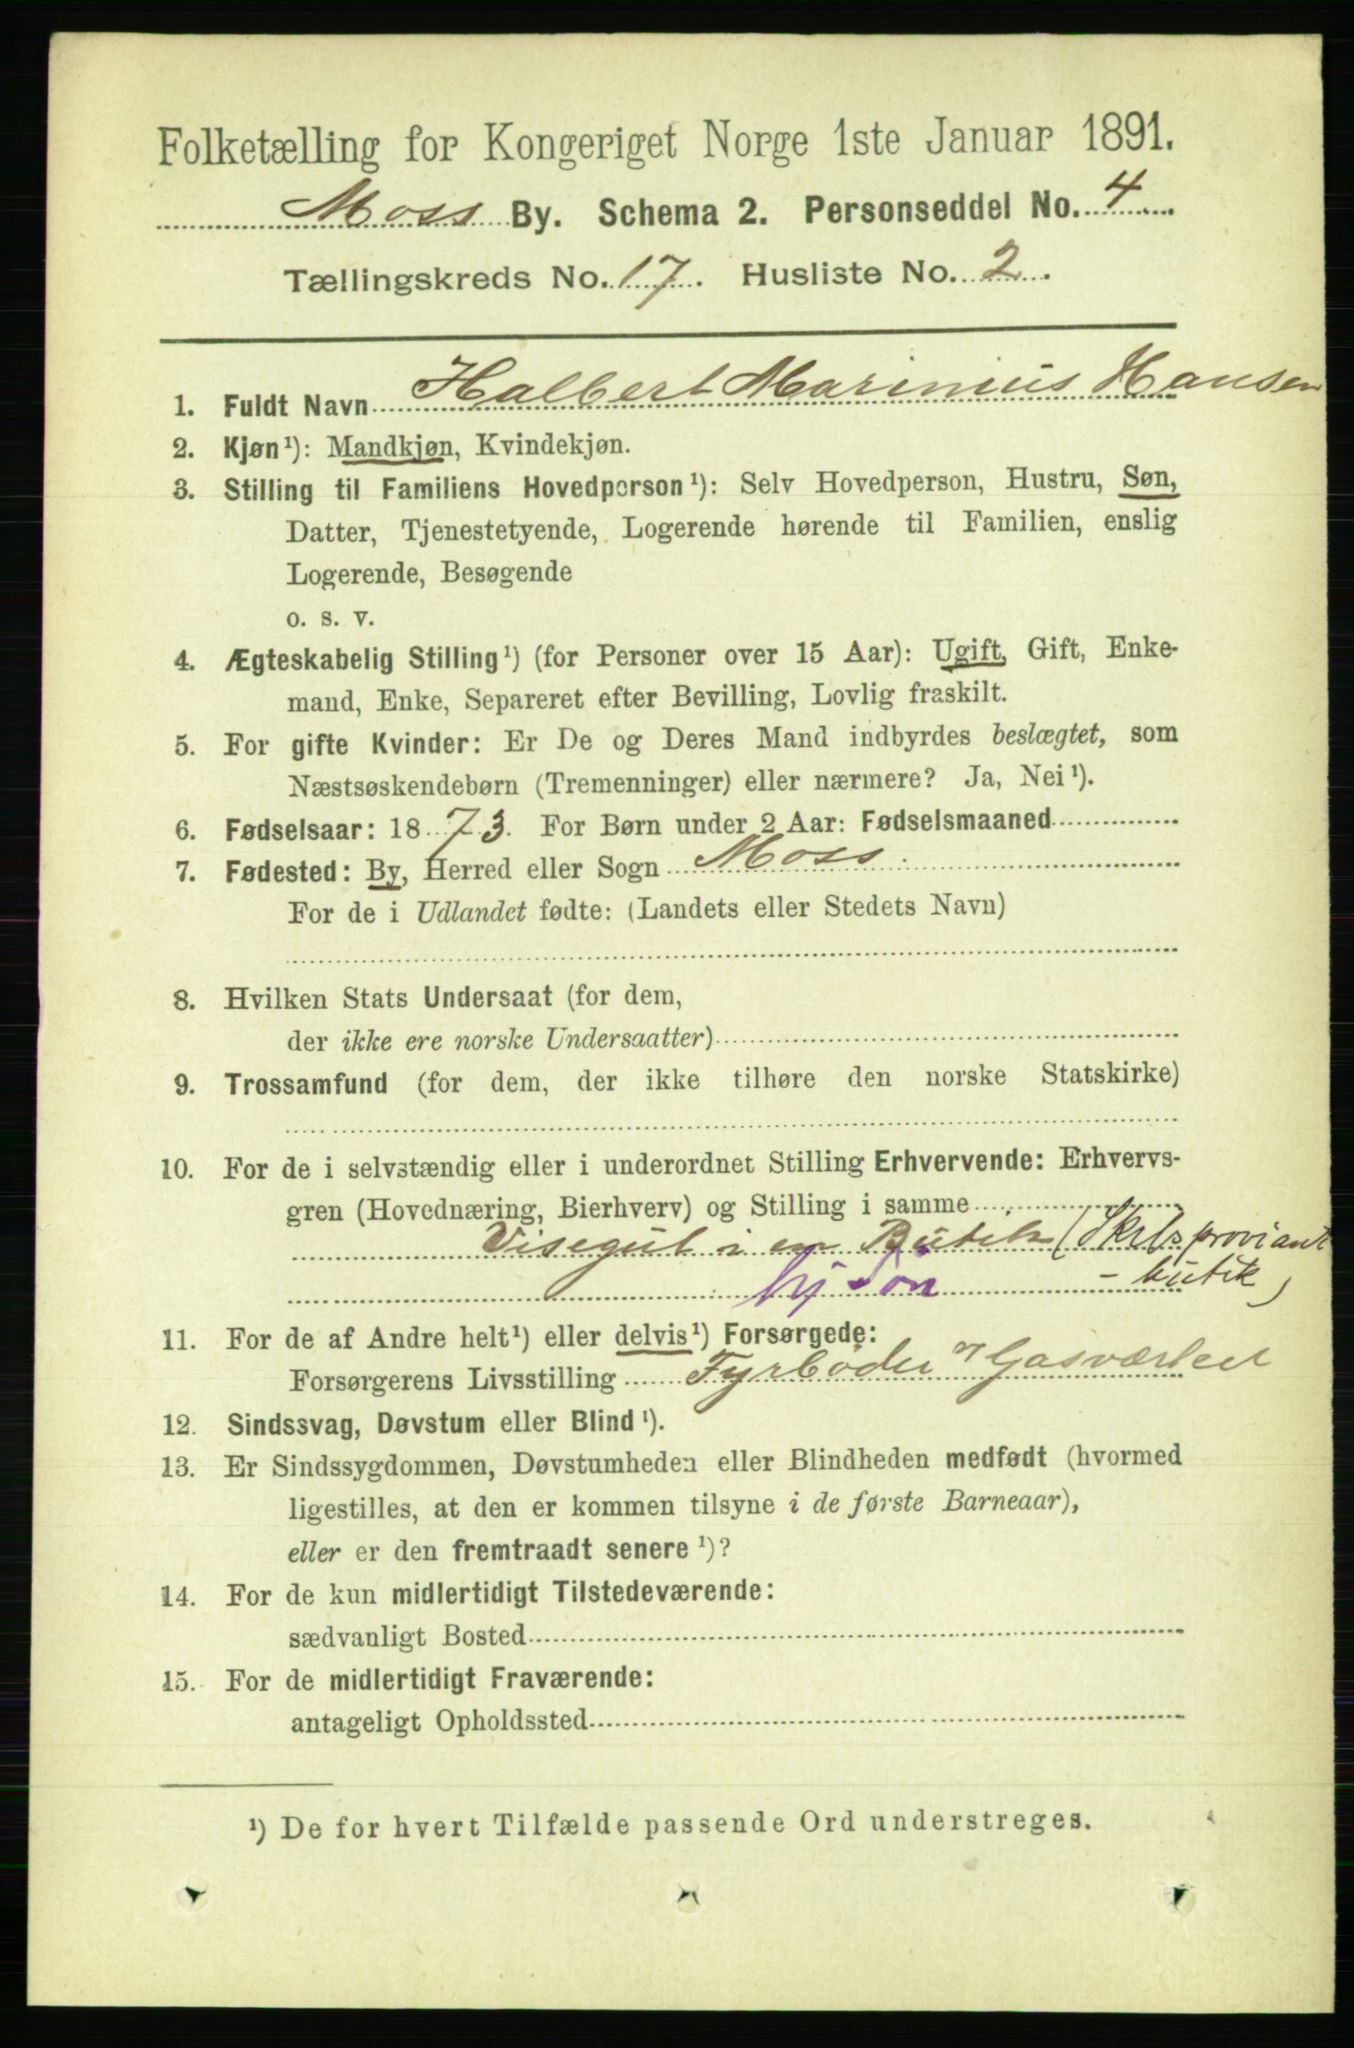 Folketælling for Kongeriget Norge 1ste Januar 1891.
Moss By. Schema 2. Personseddel No. 4
Tællingskreds No. 17. Husliste No. 2.
1. Fuldt Navn Halbert Marinius Hansen
2. Kjøn¹): Mandkjøn, Kvindekjøn.
3. Stilling til Familiens Hovedperson¹): Selv Hovedperson, Hustru, Søn,
Datter, Tjenestetyende, Logerende hørende til Familien, enslig
Logerende, Besøgende
o. s. v.
4. Ægteskabelig Stilling¹) (for Personer over 15 Aar): Ugift, Gift, Enke-
mand, Enke, Separeret efter Bevilling, Lovlig fraskilt.
5. For gifte Kvinder: Er De og Deres Mand indbyrdes beslægtet, som
Næstsøskendebørn (Tremenninger) eller nærmere? Ja, Nei¹).
6. Fødselsaar: 1873. For Børn under 2 Aar: Fødselsmaaned
7. Fødested: By, Herred eller Sogn Moss
For de i Udlandet fødte: (Landets eller Stedets Navn)
8. Hvilken Stats Undersaat (for dem,
der ikke ere norske Undersaatter)
9. Trossamfund (for dem, der ikke tilhøre den norske Statskirke)
10. For de i selvstændig eller i underordnet Stilling Erhvervende: Erhvervs-
gren (Hovednæring, Bierhverv) og Stilling i samme
Visegut i en Butik (Skibsproviant
-butik)
11. For de af Andre helt¹) eller delvis¹) Forsørgede:
Forsørgerens Livsstilling Fyrbøder v/ Gasværket
12. Sindssvag, Døvstum eller Blind¹).
13. Er Sindssygdommen, Døvstumheden eller Blindheden medfødt (hvormed
ligestilles, at den er kommen tilsyne i de første Barneaar),
eller er den fremtraadt senere¹)?
14. For de kun midlertidigt Tilstedeværende:
sædvanligt Bosted
15. For de midlertidigt Fraværende:
antageligt Opholdssted
¹) De for hvert Tilfælde passende Ord understreges.